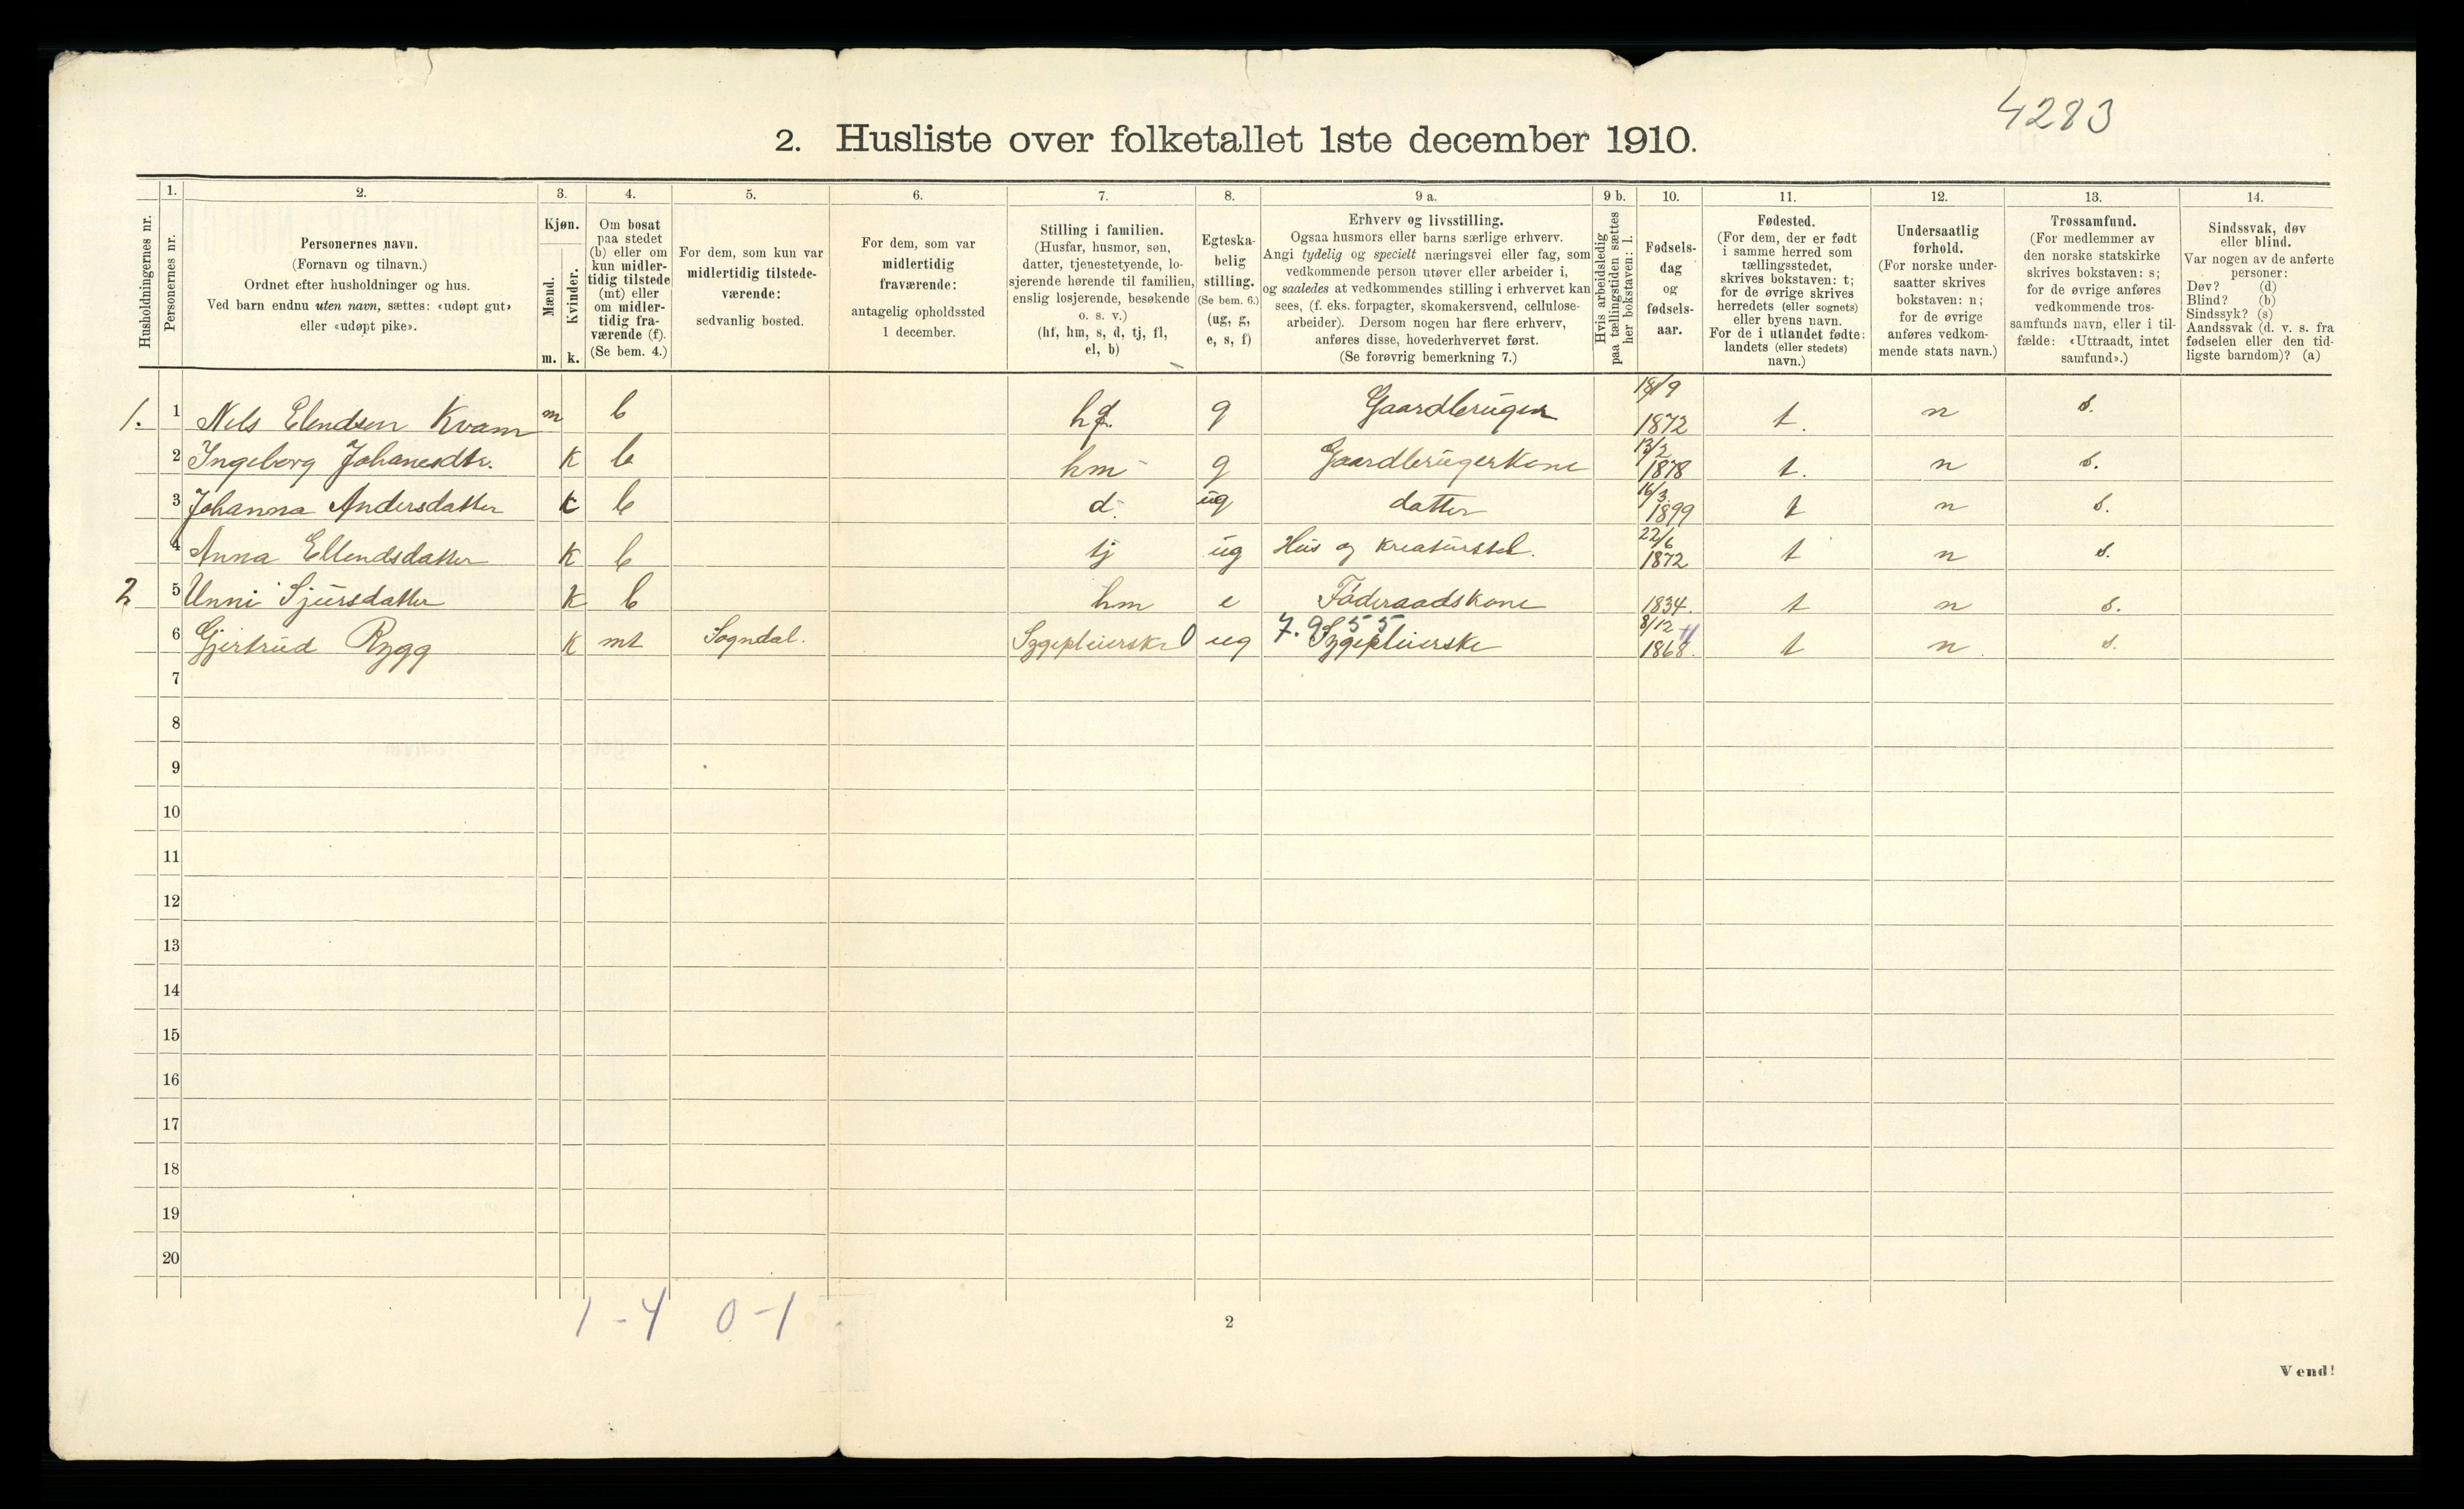 4283
2. Husliste over folketallet 1ste december 1910.
Husholdningernes nr.
1.
Personernes nr.
2.
Personernes navn.
(Fornavn og tilnavn.)
Ordnet efter husholdninger og hus.
Ved barn endnu uten navn, sættes: «udøpt gut»
eller «udøpt pike».
3.
Kjøn.
Mænd.
Kvinder.
m. k.
4.
Om bosat
paa stedet
(b) eller om
kun midler-
tidig tilstede
(mt) eller
om midler-
tidig fra-
værende (f).
(Se bem. 4.)
5.
For dem, som kun var
midlertidig tilstede-
værende:
sedvanlig bosted.
6.
For dem, som var
midlertidig
fraværende:
antagelig opholdssted
1 december.
7.
Stilling i familien.
(Husfar, husmor, søn,
datter, tjenestetyende, lo-
sjerende hørende til familien,
enslig losjerende, besøkende
o. s. v.)
(hf, hm, s, d, tj, fl,
el, b)
8.
Egteska-
belig
stilling.
(Se bem. 6.)
(ug, g,
e, s, f)
9 a.
Erhverv og livsstilling.
Ogsaa husmors eller barns særlige erhverv.
Angi tydelig og specielt næringsvei eller fag, som
vedkommende person utøver eller arbeider i,
og saaledes at vedkommendes stilling i erhvervet kan
sees, (f. eks. forpagter, skomakersvend, cellulose-
arbeider). Dersom nogen har flere erhverv,
anføres disse, hovederhvervet først.
(Se forøvrig bemerkning 7.)
9 b.
Hvis arbeidsledig
paa tællingstiden sættes
her bokstaven: l.
10.
Fødsels-
dag
og
fødsels-
aar.
11.
Fødested.
(For dem, der er født
i samme herred som
tællingsstedet,
skrives bokstaven: t;
for de øvrige skrives
herredets (eller sognets)
eller byens navn.
For de i utlandet fødte:
landets (eller stedets)
navn.)
12.
Undersaatlig
forhold.
(For norske under-
saatter skrives
bokstaven: n;
for de øvrige
anføres vedkom-
mende stats navn.)
13.
Trossamfund.
(For medlemmer av
den norske statskirke
skrives bokstaven: s;
for de øvrige anføres
vedkommende tros-
samfunds navn, eller i til-
fælde: «Uttraadt, intet
samfund».)
14.
Sindssvak, døv
eller blind.
Var nogen av de anførte
personer:
Døv? (d)
Blind? (b)
Sindssyk? (s)
Aandssvak (d. v. s. fra
fødselen eller den tid-
ligste barndom)? (a)
1. 1 Nels Elendsen Kvam m b hf. g Gaardbruger 18/9 1872 t. n s.
2 Ingeborg Johanesdtr. k b hm g Gaardbrugerkone 13/2 1878 t. n s.
3 Johanna Andersdatter k b d. ug datter 16/3 1899 t n s.
4 Anna Ellendsdatter k b tj ug Hus og kreaturstel. 22/6 1872 t n s.
2 5 Unni Sjursdatter k b hm e Føderaadskone 1834. t n s.
6 Gjertrud Rygg k mt Sogndal. Sygepleierske 0 ug 7.955 Sygepleierske 8/12 1868. t n. s.
7
8
9
10
11
12
13
14
15
16
17
18
19
20
1-4 0-1
2
Vend!